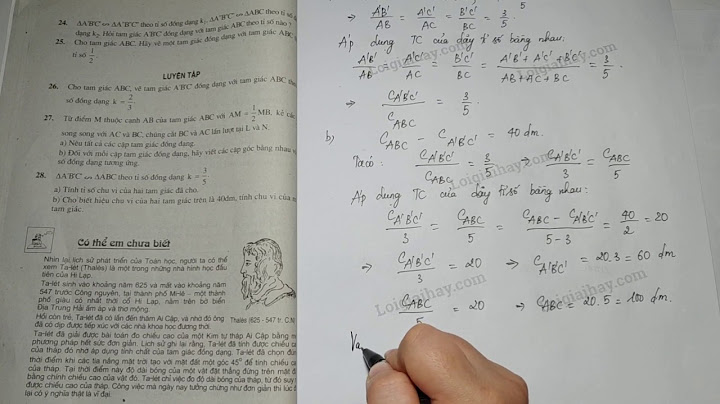 24. ΔA'B'C' ∽ ΔA"B"C" theo tỉ số đồng dạng k₁, ΔA"B"C" ∽ ΔABC theo tỉ số
dạng k₂. Hỏi tam giác A'B'C' đồng dạng với tam giác ABC theo tỉ số nào
25. Cho tam giác ABC. Hãy vẽ một tam giác đồng dạng với tam giác ABC
tỉ số 1/2
LUYỆN TẬP
26. Cho tam giác ABC, vẽ tam giác A'B'C' đồng dạng với tam giác ABC
số đồng dạng k = 2/3.
27. Từ điểm M thuộc cạnh AB của tam giác ABC với AM = 1/2 MB, kẻ các
song song với AC và BC, chúng cắt BC và AC lần lượt tại L và N.
a) Nêu tất cả các cặp tam giác đồng dạng.
b) Đối với mỗi cặp tam giác đồng dạng, hãy viết các cặp góc bằng nhau
số đồng dạng tương ứng.
28. ΔA'B'C' ∽ ΔABC theo tỉ số đồng dạng k = 3/5.
a) Tính tỉ số chu vi của hai tam giác đã cho.
b) Cho biết hiệu chu vi của hai tam giác trên là 40dm, tính chu vi của
tam giác.
Có thể em chưa biết
Nhìn lại lịch sử phát triển của Toán học, người ta có thể
xem Ta-lét (Thalès) là một trong những nhà hình học đầu
tiên của Hi Lạp.
Ta-lét sinh vào khoảng năm 625 và mất vào khoảng năm
547 trước Công nguyên, tại thành phố Mi-lê - một thành
phố giàu có nhất thời cổ Hi Lạp, nằm trên bờ biển
Địa Trung Hải ấm áp và thơ mộng.
Hồi còn trẻ, Ta-lét đã có lần đến thăm Ai Cập, và nhờ đó ông
đã có dịp được tiếp xúc với các nhà khoa học đương thời.
Thalès (625 - 547 tr. C.N
Ta-lét đã giải được bài toán đo chiều cao của một Kim tự tháp Ai Cập bằng
phương pháp hết sức đơn giản. Sử ghi lại rằng, Ta-lét đã tính được chiều
của tháp đó nhờ áp dụng tính chất của tam giác đồng dạng. Ta-lét đã chọn
thời điểm khi các tia nắng mặt trời tạo với mặt đất một góc 45° để tính chiều
của tháp. Tại thời điểm này độ dài bóng của một vật đặt thẳng đứng trên mặt
bằng chính chiều cao của vật đó. Ta-lét chỉ việc đo độ dài bóng của tháp, từ đó suy
được chiều cao của tháp. Công việc mà ngày nay tưởng chừng như đơn giản thì lúc
lại có ý nghĩa thật là vĩ đại.
⇒ A'B'/AB = A'C'/AC = B'C'/BC = 3/5
Áp dụng TC của dãy tỉ số bằng nhau:
A'B'/AB = A'C'/AC = B'C'/BC = (A'B' + A'C' + B'C')/(AB + AC + BC) = 3/5.
⇒ C_A'B'C'/C_ABC = 3/5.
b) C_ABC - C_A'B'C' = 40 dm.
Ta có: C_A'B'C'/C_ABC = 3/5 ⇒ C_A'B'C'/3 = C_ABC/5
Áp dụng TC của dãy tỉ số bằng nhau:
C_A'B'C'/3 = C_ABC/5 = (C_ABC - C_A'B'C')/(5-3) = 40/2 = 20
⇒ C_A'B'C'/3 = 20 ⇒ C_A'B'C' = 20.3 = 60 dm
C_ABC/5 = 20 ⇒ C_ABC = 20.5 = 100 dm.
Va
Loigiaihay.com
Loigiaihay.com
Loigiaihay.com
Loigiaihay.com